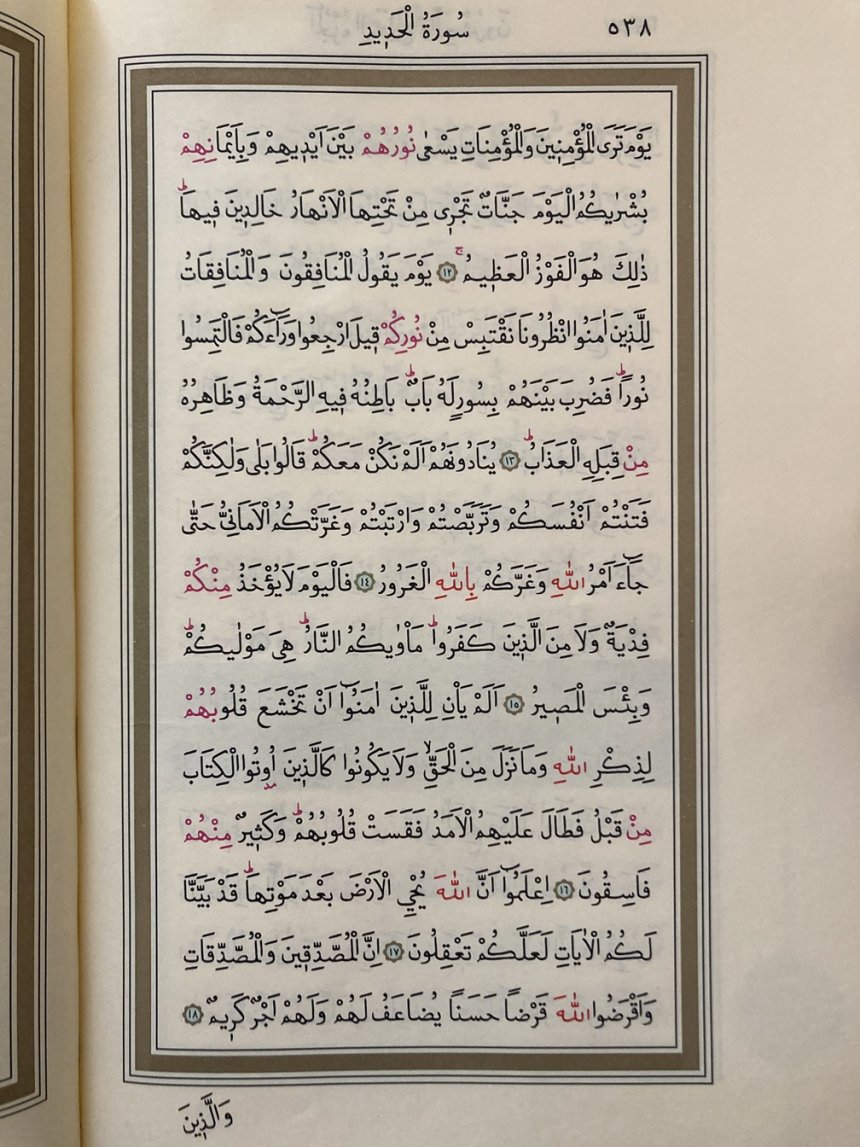 ٥٣٨
سُورَةُ الْحَدٖيدِ
يَوْمَ تَرَى الْمُؤْمِنٖينَ وَالْمُؤْمِنَاتِ يَسْعٰى نُورُهُمْ بَيْنَ اَيْدٖيهِمْ وَبِاَيْمَانِهِمْ
بُشْرٰيكُمُ الْيَوْمَ جَنَّاتٌ تَجْرٖى مِنْ تَحْتِهَا الْاَنْهَارُ خَالِدٖينَ فٖيهَاۜ
ذٰلِكَ هُوَ الْفَوْزُ الْعَظٖيمُۚ ﴿١٢﴾ يَوْمَ يَقُولُ الْمُنَافِقُونَ وَالْمُنَافِقَاتُ
لِلَّذٖينَ اٰمَنُوا انْظُرُونَا نَقْتَبِسْ مِنْ نُورِكُمْ قٖيلَ ارْجِعُوا وَرَٓاءَكُمْ فَالْتَمِسُوا
نُوراًۜ فَضُرِبَ بَيْنَهُمْ بِسُورٍ لَهُ بَابٌۜ بَاطِنُهُ فٖيهِ الرَّحْمَةُ وَظَاهِرُهُ
مِنْ قِبَلِهِ الْعَذَابُۜ ﴿١٣﴾ يُنَادُونَهُمْ اَلَمْ نَكُنْ مَعَكُمْۜ قَالُوا بَلٰى وَلٰكِنَّكُمْ
فَتَنْتُمْ اَنْفُسَكُمْ وَتَرَبَّصْتُمْ وَارْتَبْتُمْ وَغَرَّتْكُمُ الْاَمَانِىُّ حَتّٰى
جَٓاءَ اَمْرُ اللّٰهِ وَغَرَّكُمْ بِاللّٰهِ الْغَرُورُ ﴿١٤﴾ فَالْيَوْمَ لَا يُؤْخَذُ مِنْكُمْ
فِدْيَةٌ وَلَا مِنَ الَّذٖينَ كَفَرُواۜ مَأْوٰيكُمُ النَّارُۜ هِىَ مَوْلٰيكُمْۜ
وَبِئْسَ الْمَصٖيرُ ﴿١٥﴾ اَلَمْ يَأْنِ لِلَّذٖينَ اٰمَنُٓوا اَنْ تَخْشَعَ قُلُوبُهُمْ
لِذِكْرِ اللّٰهِ وَمَا نَزَلَ مِنَ الْحَقِّۙ وَلَا يَكُونُوا كَالَّذٖينَ اُو۫تُوا الْكِتَابَ
مِنْ قَبْلُ فَطَالَ عَلَيْهِمُ الْاَمَدُ فَقَسَتْ قُلُوبُهُمْۜ وَكَثٖيرٌ مِنْهُمْ
فَاسِقُونَ ﴿١٦﴾ اِعْلَمُٓوا اَنَّ اللّٰهَ يُحْيِ الْاَرْضَ بَعْدَ مَوْتِهَاۜ قَدْ بَيَّنَّا
لَكُمُ الْاٰيَاتِ لَعَلَّكُمْ تَعْقِلُونَ ﴿١٧﴾ اِنَّ الْمُصَّدِّقٖينَ وَالْمُصَّدِّقَاتِ
وَاَقْرَضُوا اللّٰهَ قَرْضاً حَسَناً يُضَاعَفُ لَهُمْ وَلَهُمْ اَجْرٌ كَرٖيمٌ ﴿١٨﴾
وَالَّذٖينَ